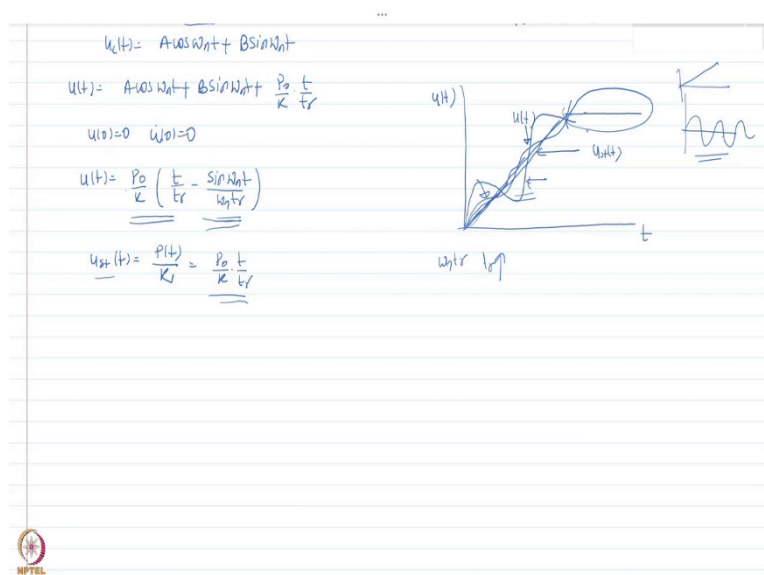 ...
u_c(t) = A cos ω_n t + B sin ω_n t
u(t) = A cos ω_n t + B sin ω_n t + P_0/K · t/t_r
u(0)=0 u̇(0)=0
u(t) = P_0/K ( t/t_r - sin ω_n t/ω_n t_r )
u_st(t) = P(t)/K = P_0/K · t/t_r
u(t)
u(t)
u_st(t)
t
ω_n t_r
NPTEL